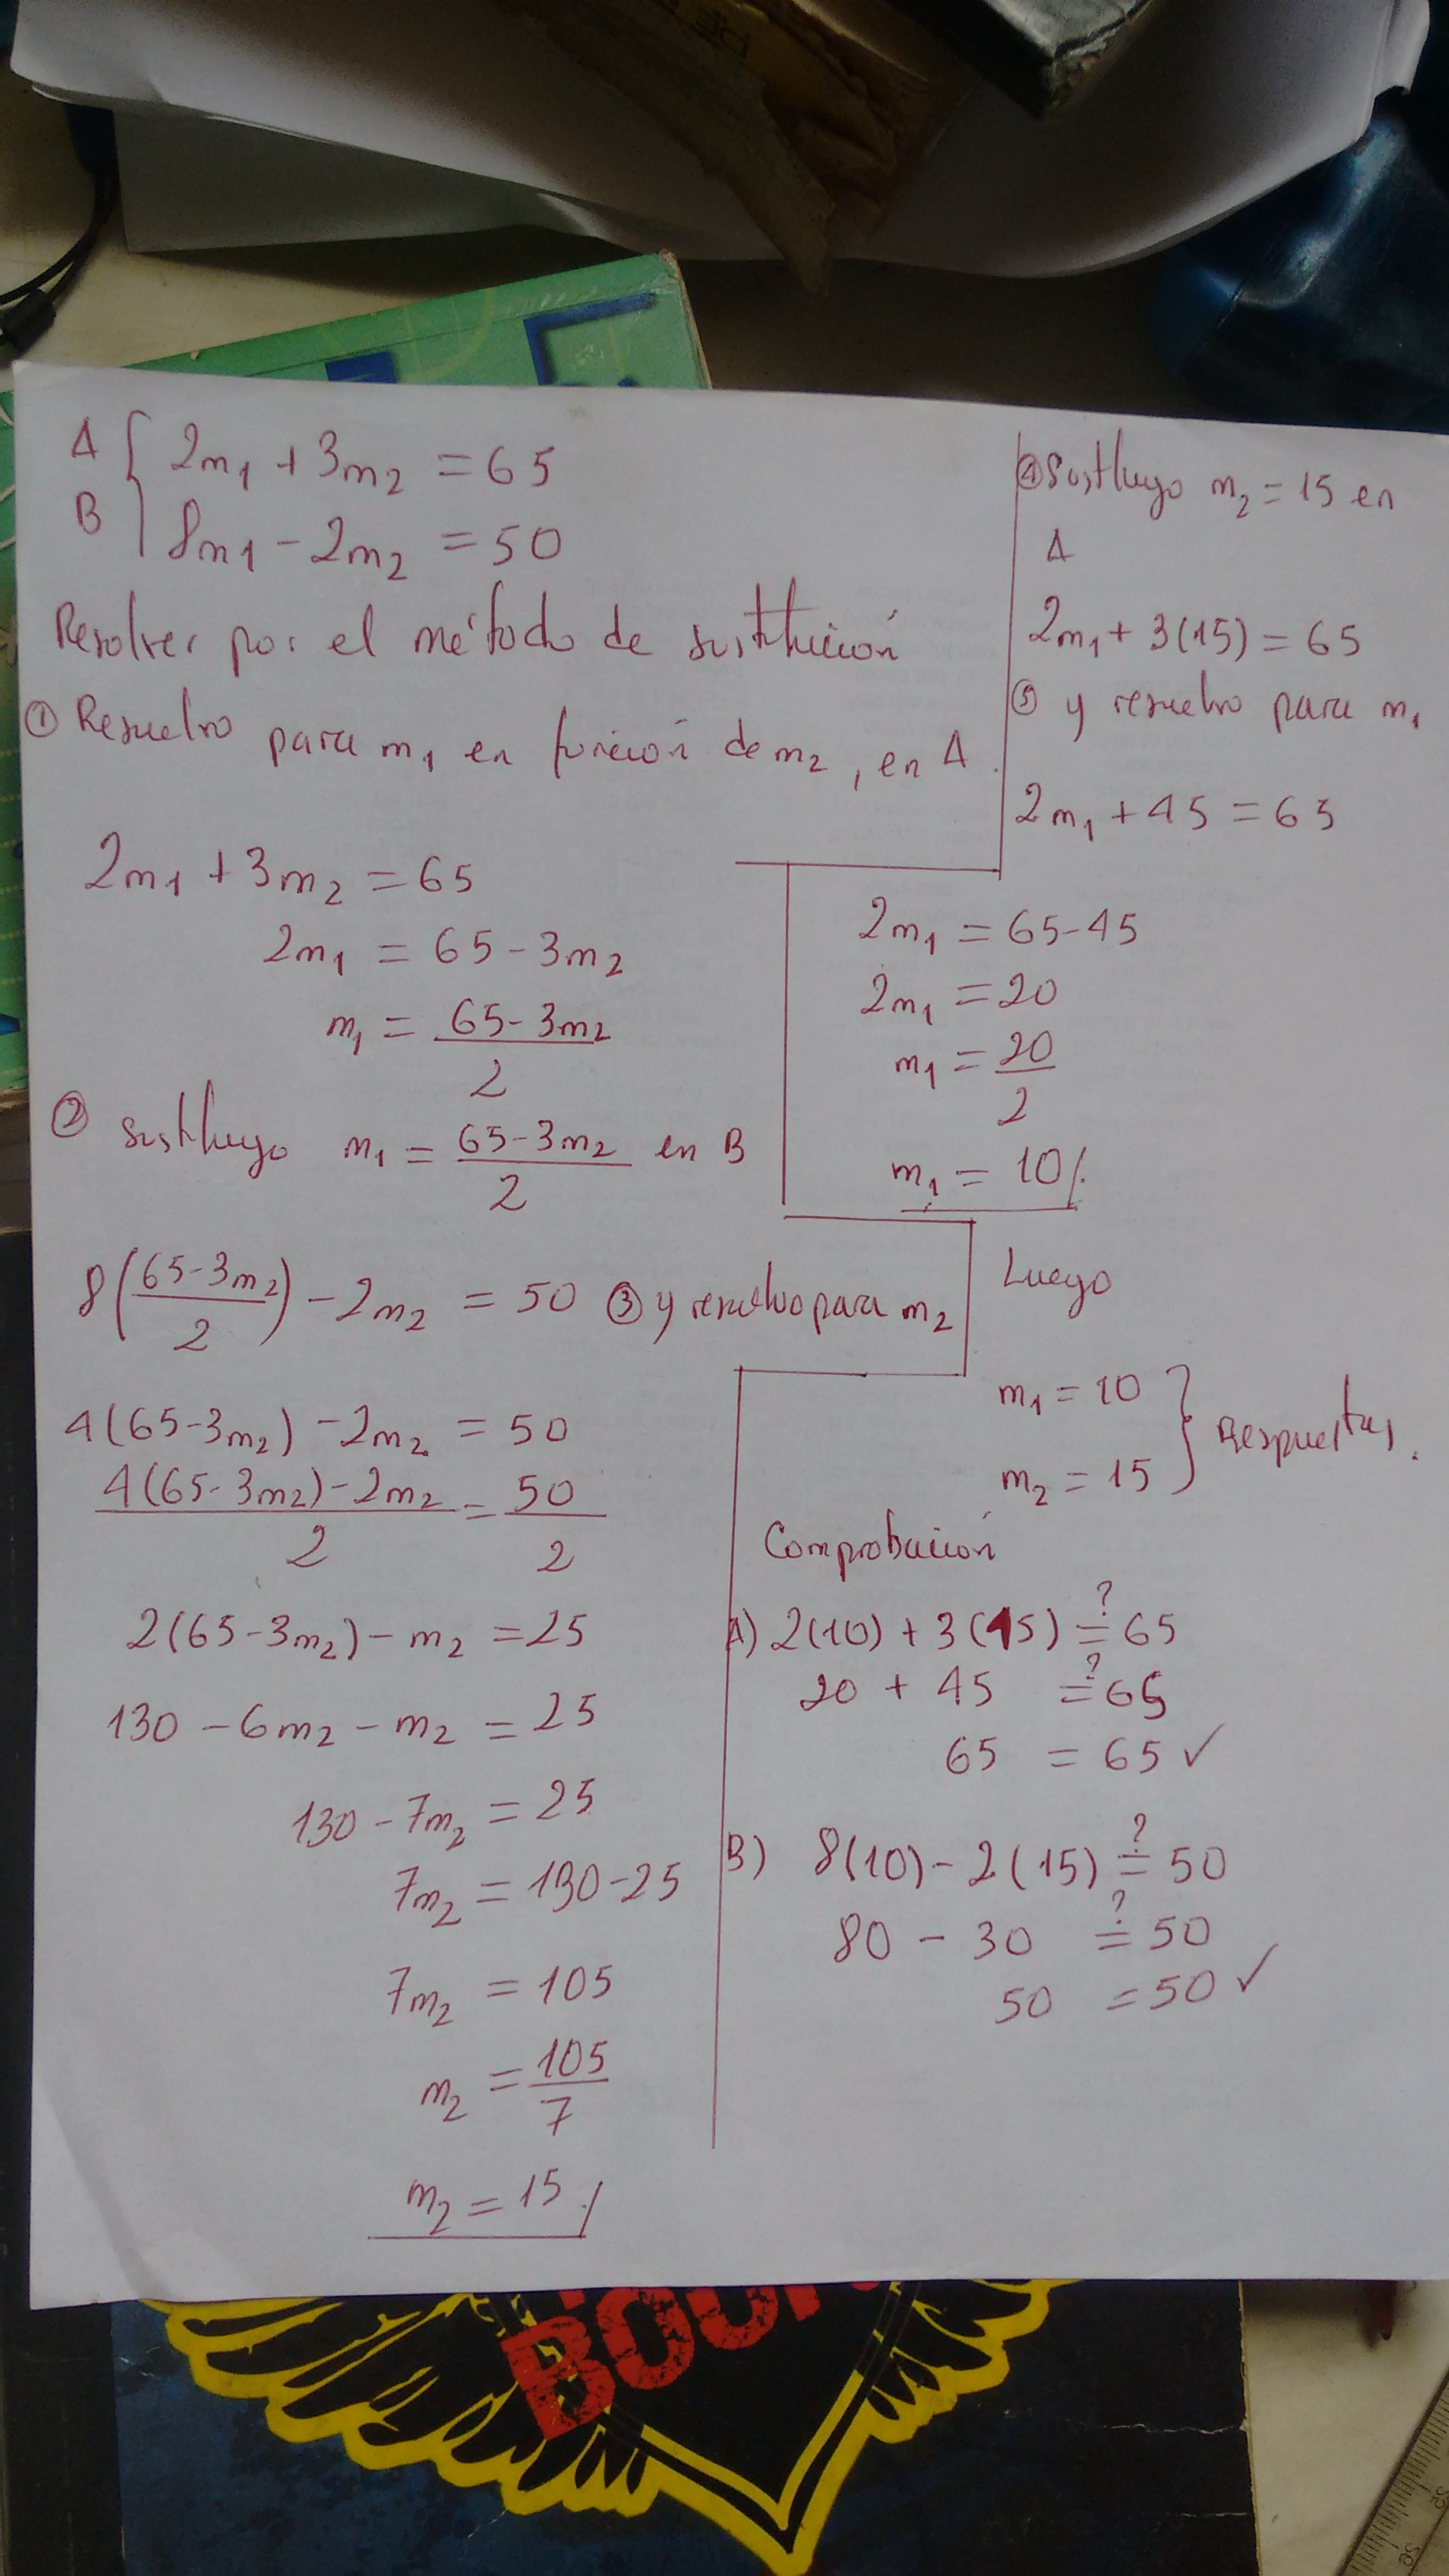 A { 2m₁ + 3m₂ = 65
B { 8m₁ - 2m₂ = 50
Resolver por el método de sustitución
① Resuelvo para m₁ en función de m₂, en A.
2m₁ + 3m₂ = 65
2m₁ = 65 - 3m₂
m₁ = (65 - 3m₂)/2
② sustituyo m₁ = (65 - 3m₂)/2 en B
8((65 - 3m₂)/2) - 2m₂ = 50 ③ y resuelvo para m₂
4(65 - 3m₂) - 2m₂ = 50
(4(65 - 3m₂) - 2m₂)/2 = 50/2
2(65 - 3m₂) - m₂ = 25
130 - 6m₂ - m₂ = 25
130 - 7m₂ = 25
7m₂ = 130 - 25
7m₂ = 105
m₂ = 105/7
m₂ = 15
④ Sustituyo m₂ = 15 en
A
2m₁ + 3(15) = 65
⑤ y resuelvo para m₁
2m₁ + 45 = 65
2m₁ = 65 - 45
2m₁ = 20
m₁ = 20/2
m₁ = 10
Luego
m₁ = 10
m₂ = 15 } Respuestas.
Comprobación
A) 2(10) + 3(15) ≟ 65
20 + 45 ≟ 65
65 = 65 ✓
B) 8(10) - 2(15) ≟ 50
80 - 30 ≟ 50
50 = 50 ✓